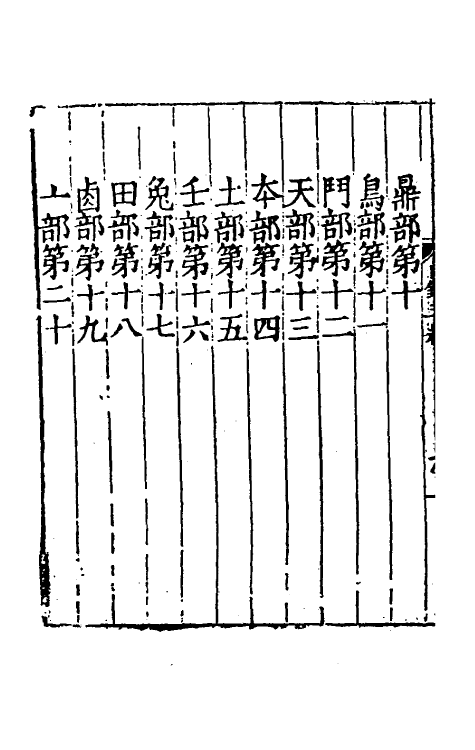 鼎部第十
鳥部第十一
鬥部第十二
天部第十三
本部第十四
土部第十五
壬部第十六
兔部第十七
田部第十八
鹵部第十九
亠部第二十